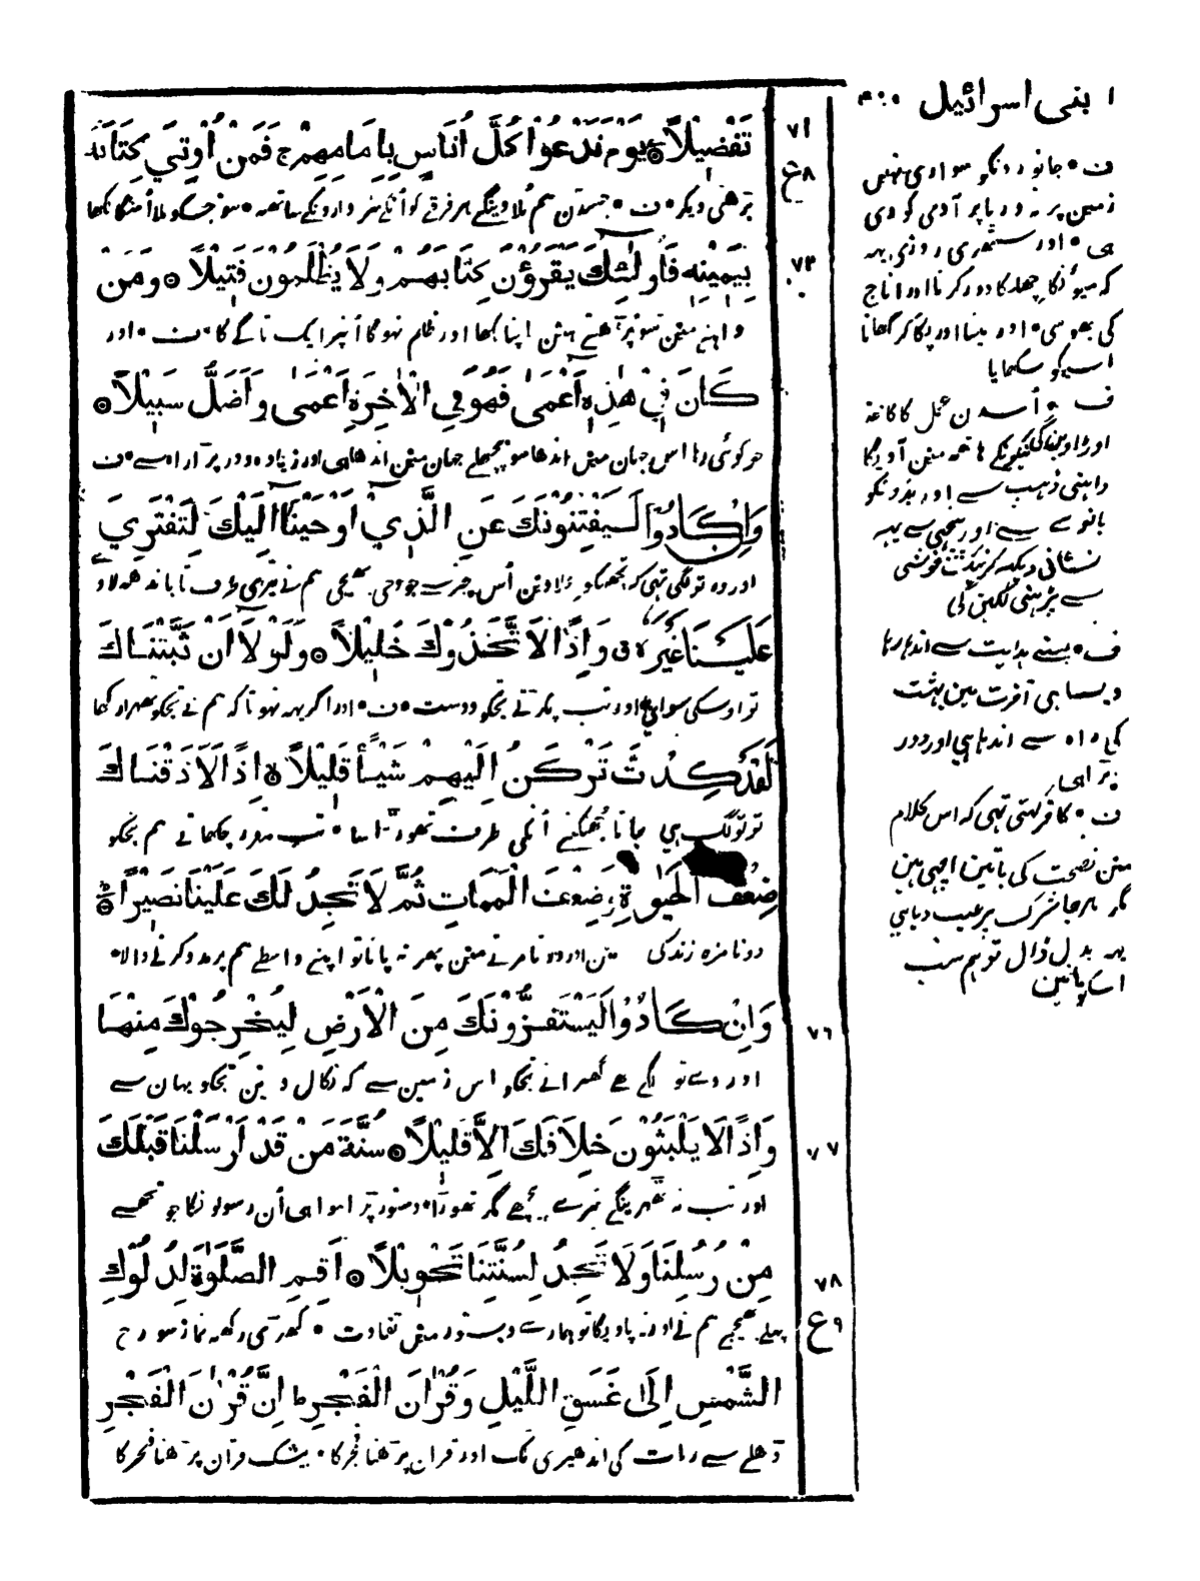 ا بنی اسرائیل
تَفْضِيْلًا ۞ يَوْمَ نَدْعُوْا كُلَّ اُنَاسٍ بِاِمَامِهِمْ ج فَمَنْ اُوْتِيَ كِتَابَهٗ
۷۱
ع ۸
بڑھتی دیکر ۰ ف ۰ جسدن ہم بلاوینگے ہر فرقے کو انکے سردارونکے ساتھہ ۰ سو جسکو ملا اسکا لکھا
بِيَمِيْنِهٖ فَاُولٰٓئِكَ يَقْرَؤُنَ كِتَابَهُمْ وَلَا يُظْلَمُوْنَ فَتِيْلًا ۞ وَمَنْ
۷۲
داہنے مین سو پڑھتے ہین اپنا لکھا اور ظلم نہوگا اُنپر ایک تاگے کا ۰ ف ۰ اور
كَانَ فِيْ هٰذِهٖٓ اَعْمٰى فَهُوَ فِي الْاٰخِرَةِ اَعْمٰى وَاَضَلُّ سَبِيْلًا ۞
جو کوئی رہا اس جہان مین اندھا سو پچھلے جہان مین اندھا ہی اور زیادہ دور پڑا راہ سے ۰ ف
وَاِنْ كَادُوْا لَيَفْتِنُوْنَكَ عَنِ الَّذِيْٓ اَوْحَيْنَآ اِلَيْكَ لِتَفْتَرِيَ
اور وہ تو لگی تہی کہ تجھکو بچلا دین اُس چیز سے جو وحی بھیجی ہم نے تیری طرف تا باندھہ لاوے
عَلَيْنَا غَيْرَهٗ ق وَاِذًا لَّاتَّخَذُوْكَ خَلِيْلًا ۞ وَلَوْلَآ اَنْ ثَبَّتْنَاكَ
تو اوسکی سوای اور تب پکڑتے تجکو دوست ۰ ف ۰ اور اگر یہہ نہوتا کہ ہم نے تجکو ٹھہرا رکھا
لَقَدْ كِدْتَّ تَرْكَنُ اِلَيْهِمْ شَيْـًٔا قَلِيْلًا ۞ اِذًا لَّاَذَقْنَاكَ
تو تو لگ ہی جاتا جُھکنے اُنکی طرف تھوڑا سا ۰ تب ضرور چکھاتے ہم تجکو
ضِعْفَ الْحَيٰوةِ وَضِعْفَ الْمَمَاتِ ثُمَّ لَا تَجِدُ لَكَ عَلَيْنَا نَصِيْرًا ۞
دونا مزہ زندگی مین اور دونا مرنے مین پھر نہ پاتا تو اپنے واسطے ہم پر مدد کرنے والا ۰
وَاِنْ كَادُوْا لَيَسْتَفِزُّوْنَكَ مِنَ الْاَرْضِ لِيُخْرِجُوْكَ مِنْهَا
۷۶
اور وے تو لگے تھے گھبرانے تجکو اس زمین سے کہ نکال دین تجکو یہان سے
وَاِذًا لَّا يَلْبَثُوْنَ خِلَافَكَ اِلَّا قَلِيْلًا ۞ سُنَّةَ مَنْ قَدْ اَرْسَلْنَا قَبْلَكَ
۷۷
اور تب نہ ٹھہرینگے تیرے پیچھے مگر تھوڑا ۰ دستور پڑا ہوا ہی اُن رسولونکا جو تجھسے
مِنْ رُّسُلِنَا وَلَا تَجِدُ لِسُنَّتِنَا تَحْوِيْلًا ۞ اَقِمِ الصَّلٰوةَ لِدُلُوْكِ
۷۸
پہلے بھیجے ہم نے اور نہ پاویگا تو ہمارے دستور مین تفاوت ۰ کھڑی رکھہ نماز سورج
ع ۹
الشَّمْسِ اِلٰى غَسَقِ اللَّيْلِ وَقُرْاٰنَ الْفَجْرِ ط اِنَّ قُرْاٰنَ الْفَجْرِ
ڈھلے سے رات کی اندھیری تک اور قران پڑھنا فجر کا ۰ بیشک قران پڑھنا فجر کا
ف ۰ جانورونکو سواری نہین
زمین پر نہ دریا پر آدمی کو دی
ہی ۰ اور ستھری روزی یہہ
کہ میوُنکا چھلکا دور کرنا اور اناج
کی بھوسی ۰ اور پیسنا اور پکاکر کھانا
اسیکو سکھایا
ف ۰ اُسدن عمل کا کاغذ
اوڑا دینگے نیکونکے ہاتھہ مین آویگا
داہنی سے اور بدونکو
بانوے سے اور پیچھی سے یہہ
نشانی دیکہہ کر نیک خوشی
سے پڑہینی لگین گی
ف ۰ یعنے ہدایت سے اندہا رہا
ویسا ہی آخرت مین بہشت
کی راہ سے اندہا ہی اور دور
پڑا ہی
ف ۰ کافر کہتی تہی کہ اس کلام
مین نصیحت کی باتین اچہی ہین
مگر ہرجا شرک پر عیب دیا ہی
یہہ بدل ڈال تو ہم سب
اسکو مانین